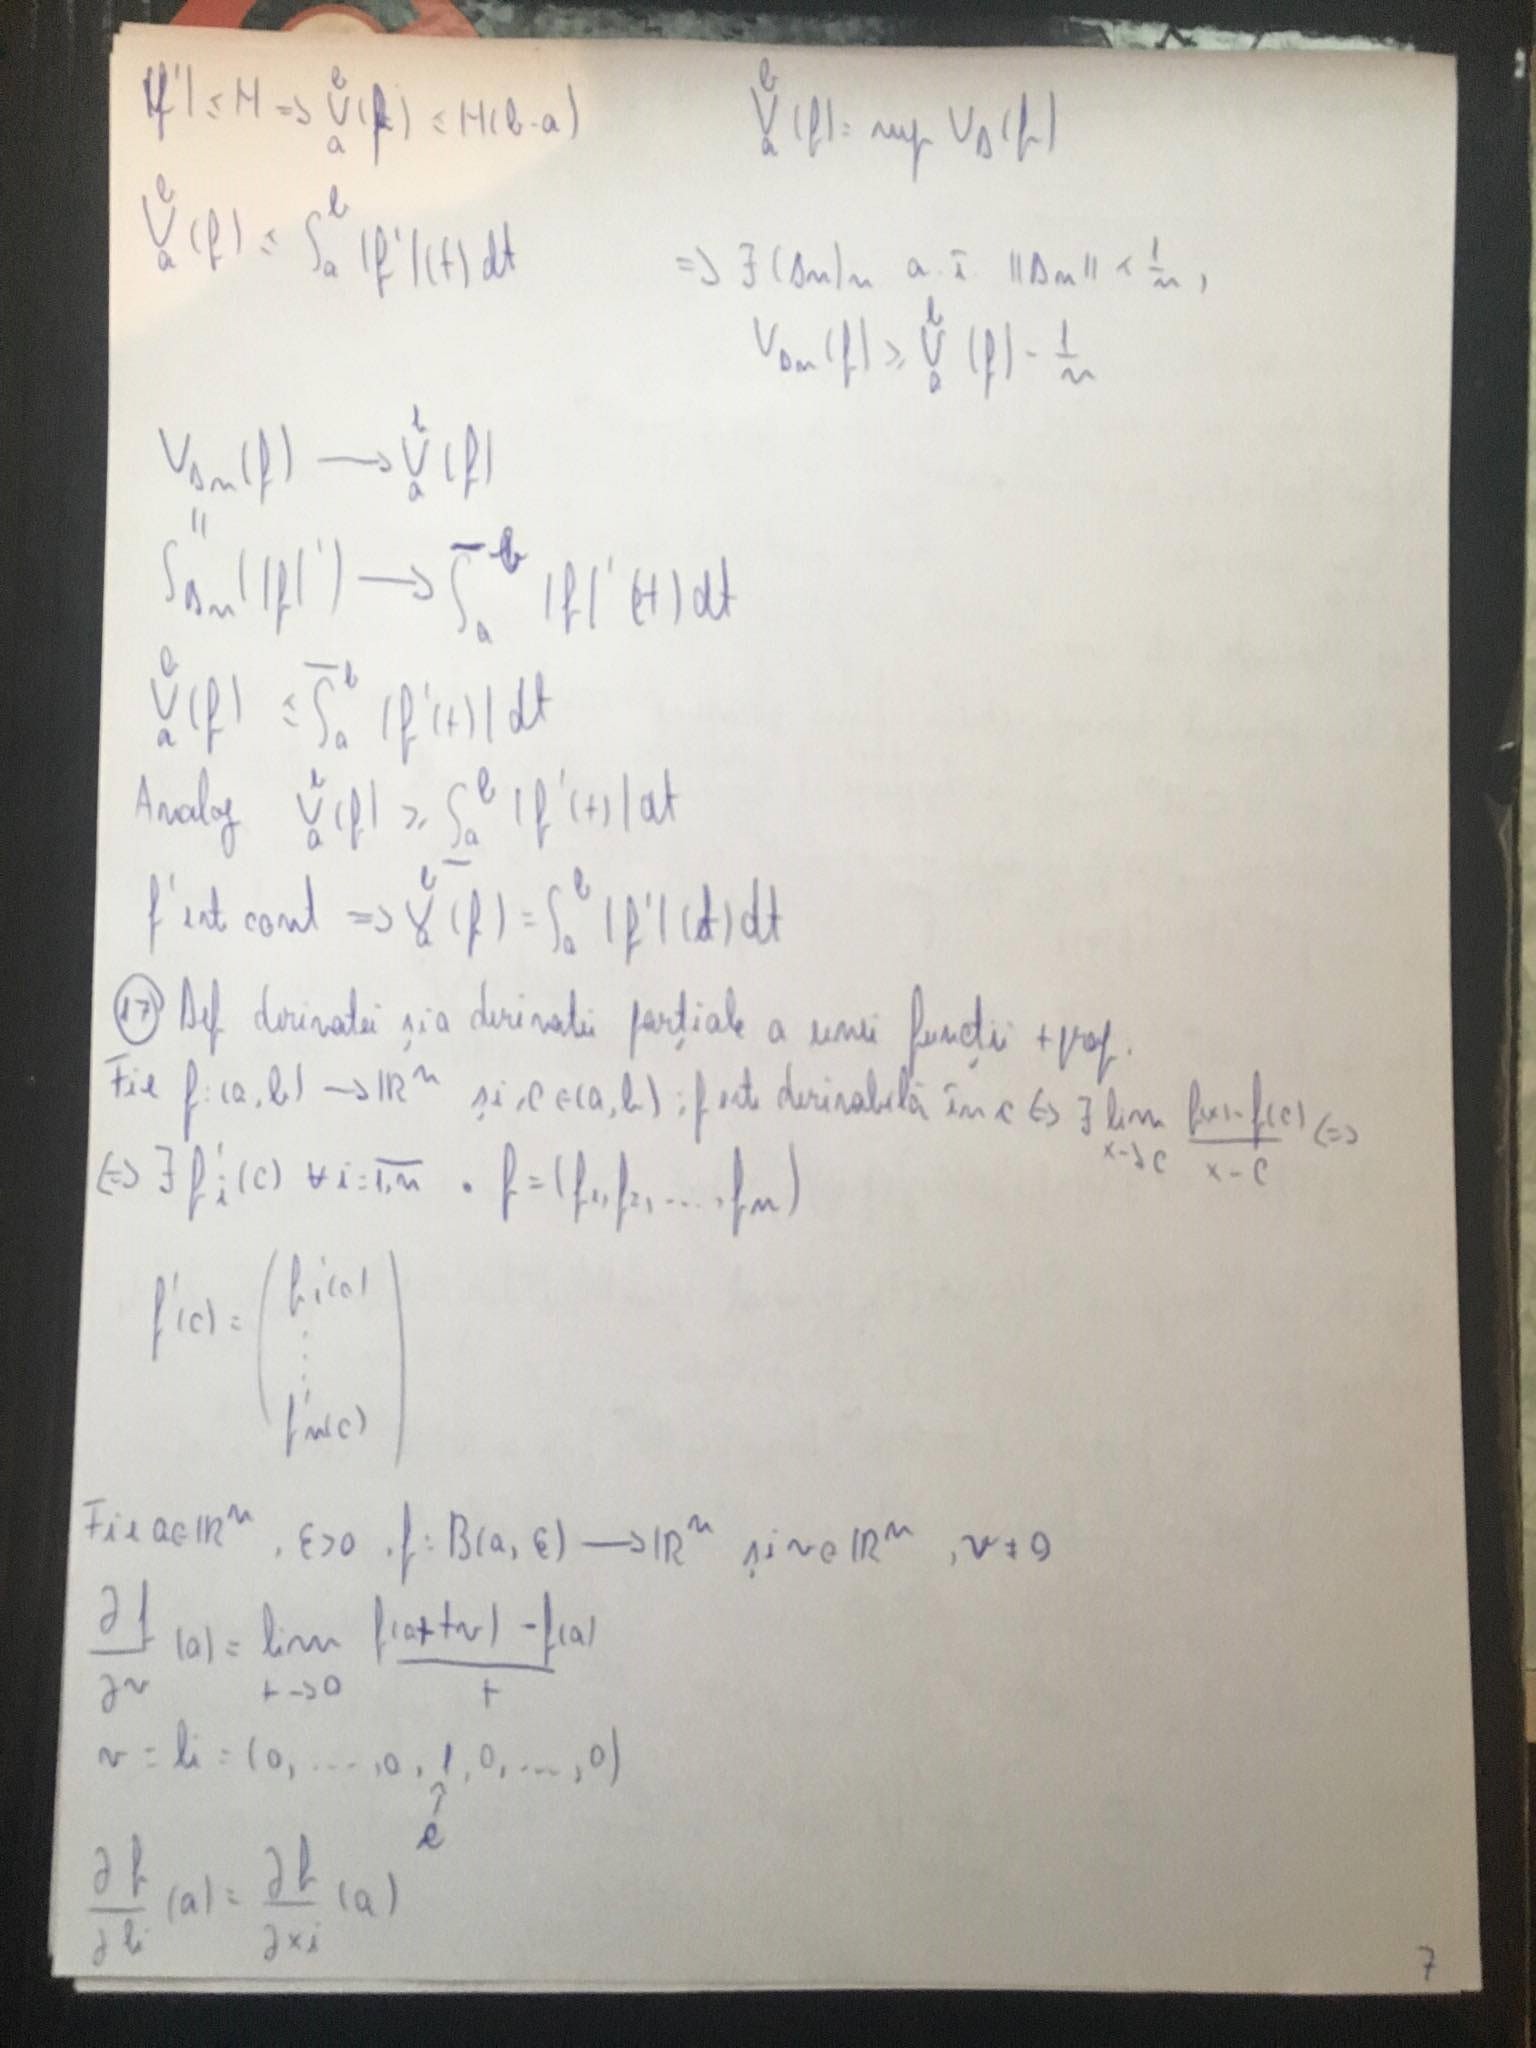 |f'| ≤ M => V_a^b(f) ≤ M(b-a)
V_a^b(f) = sup V_Δ(f)
V_a^b(f) ≤ ∫_a^b |f'|(t) dt
=> ∃ (Δn)n a.î. ||Δn|| < 1/n,
V_Δn(f) ≥ V_a^b(f) - 1/n
V_Δn(f) → V_a^b(f)
||
S_Δn(|f|') → ∫̅_a^b |f|'(t) dt
V_a^b(f) ≤ ∫̅_a^b |f'(t)| dt
Analog V_a^b(f) ≥ ∫̲_a^b |f'(t)| dt
f' est cont => V_a^b(f) = ∫_a^b |f'|(t) dt
17) Def derivatei și a derivatei parțiale a unei funcții + prop.
Fie f: (a,b) → ℝ^n și c∈(a,b); f este derivabilă în c <=> ∃ lim_{x→c} (f(x)-f(c))/(x-c) <=>
<=> ∃ f'i(c) ∀ i=1,n̅ . f = (f1, f2, ..., fn)
f'(c) = (f'1(c) ⋮ f'n(c))
Fie a∈ℝ^n, ε>0, f: B(a, ε) → ℝ^n și v∈ℝ^n, v≠0
∂f/∂v (a) = lim_{t→0} (f(a+tv) - f(a))/t
v = ei = (0, ..., 0, 1, 0, ..., 0)
↑
i
∂f/∂ei (a) = ∂f/∂xi (a)
7